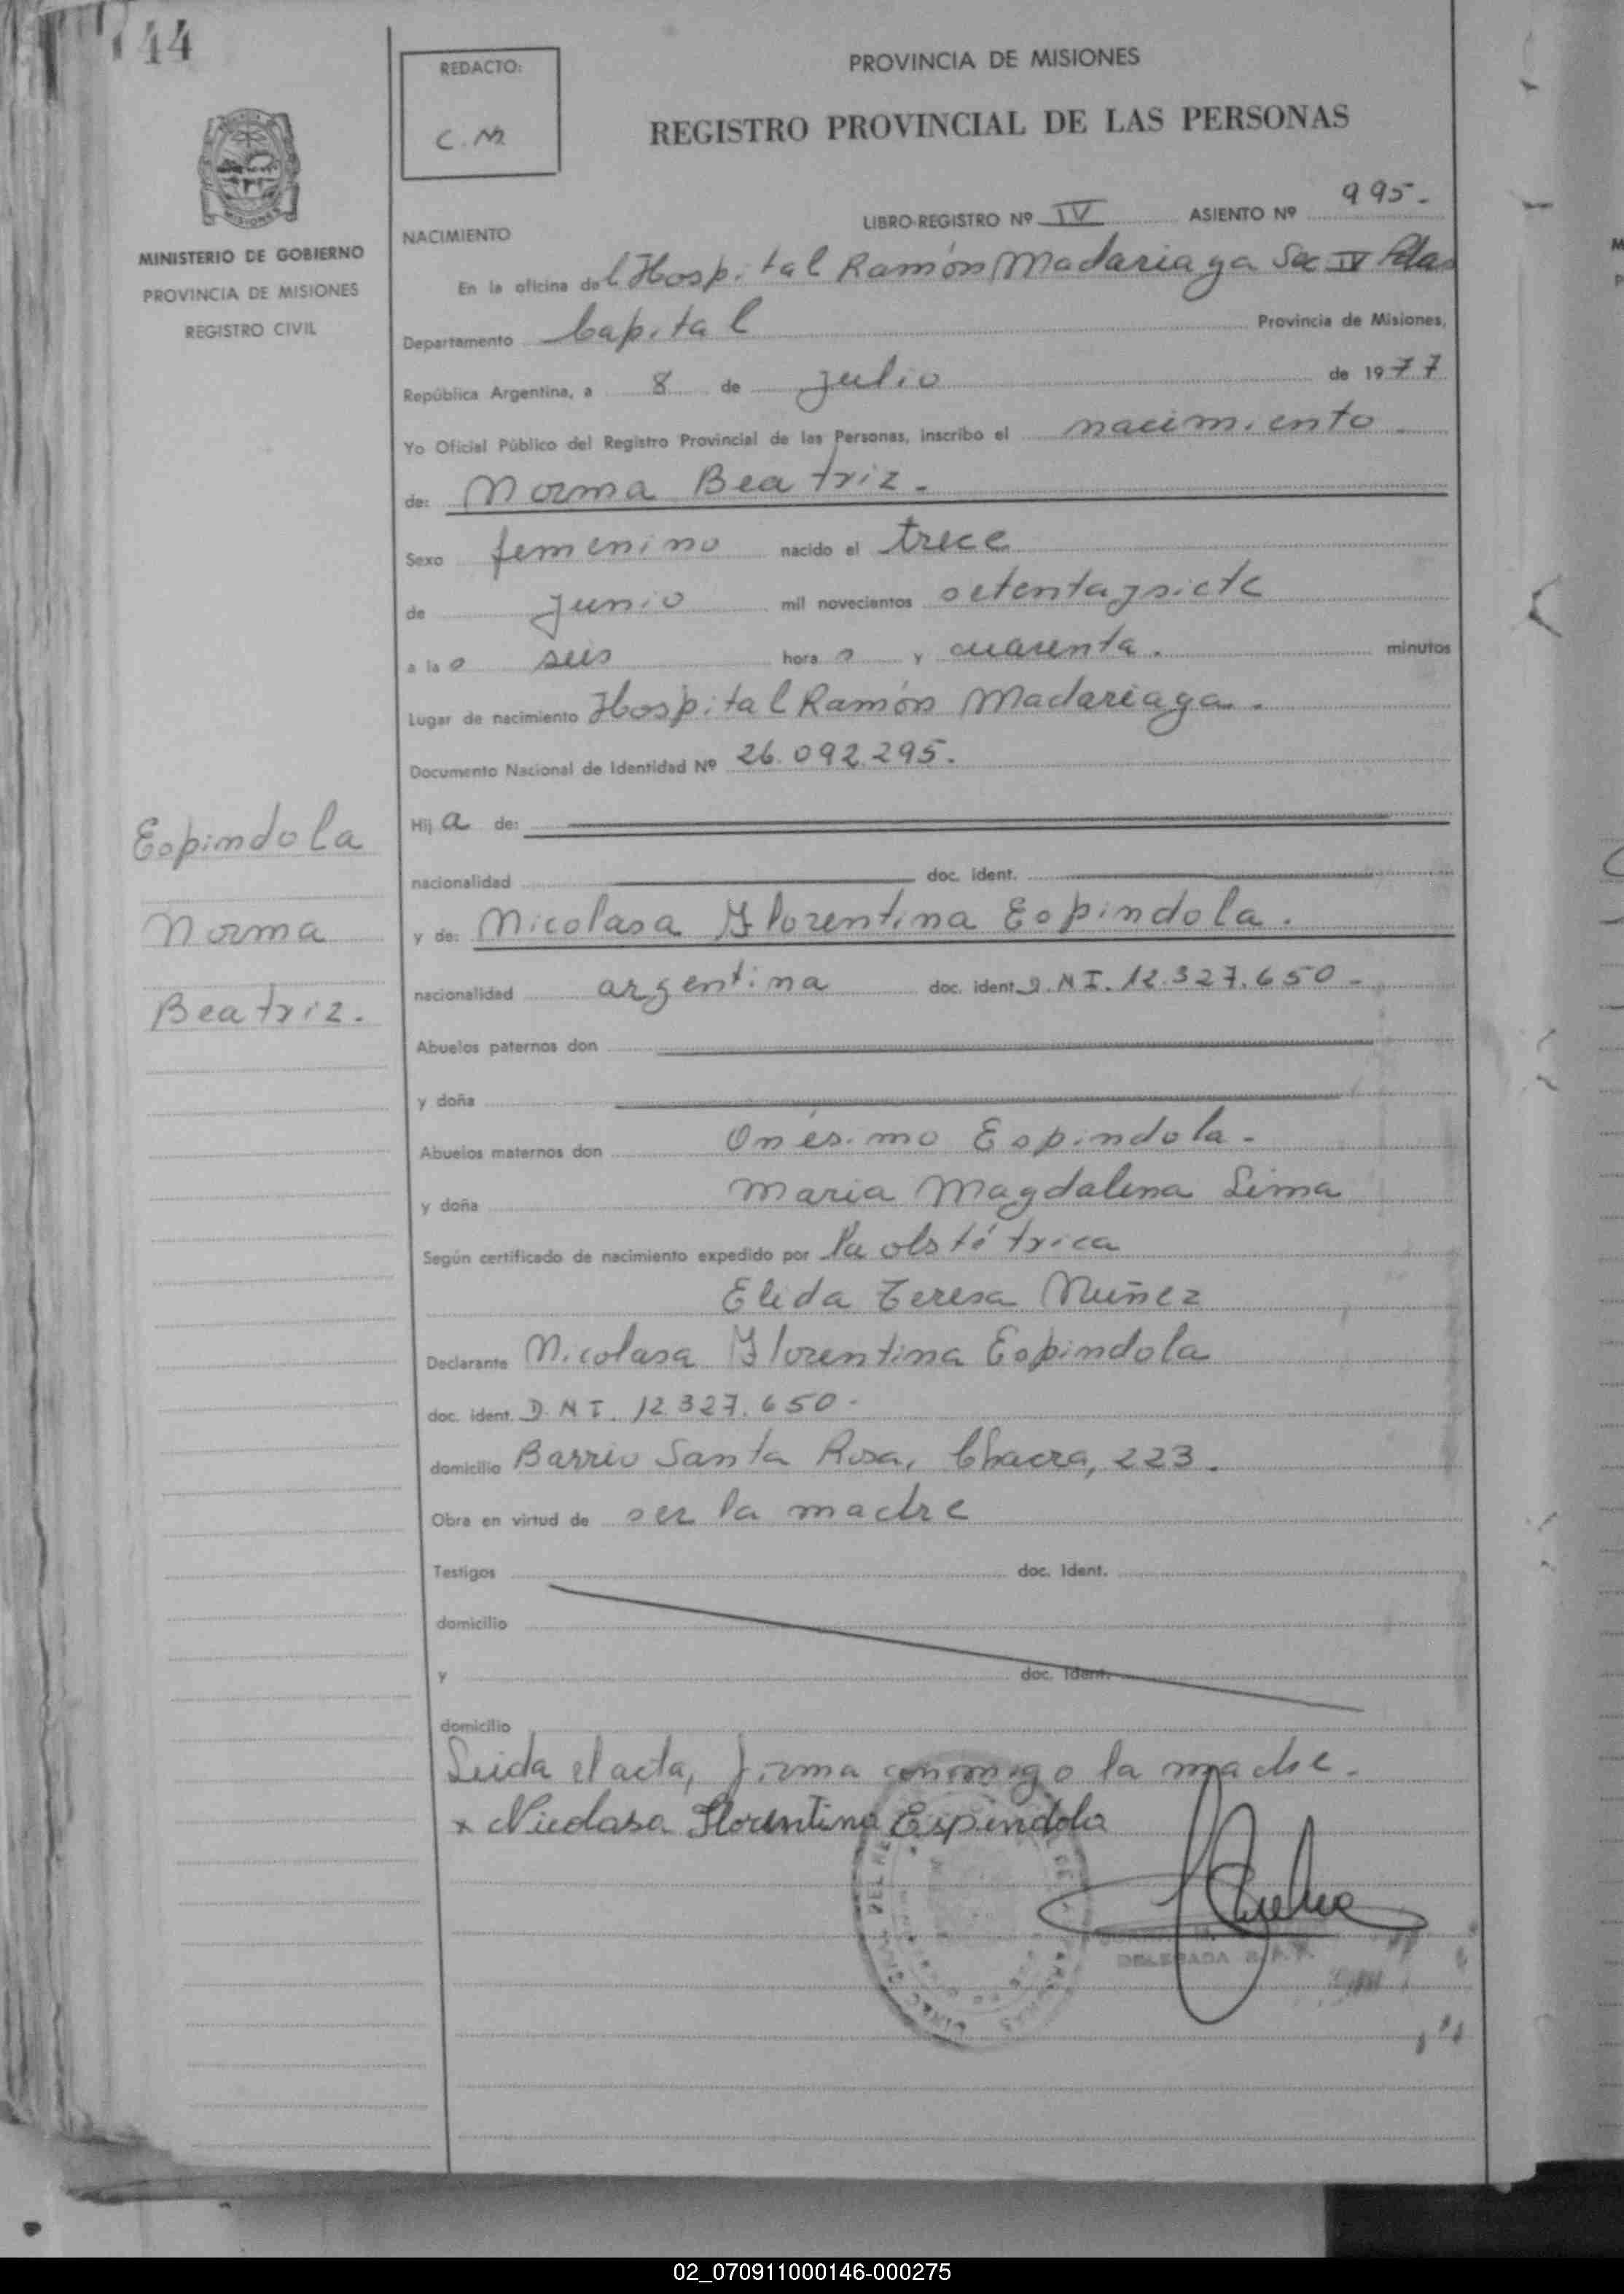 144
REDACTO:
C.M
PROVINCIA DE MISIONES
REGISTRO PROVINCIAL DE LAS PERSONAS
MISIONES
MINISTERIO DE GOBIERNO
PROVINCIA DE MISIONES
REGISTRO CIVIL
LIBRO-REGISTRO Nº IV ASIENTO Nº 995.-
NACIMIENTO
En la oficina del Hospital Ramón Madariaga Sec IV Pdas
Departamento Capital Provincia de Misiones,
República Argentina, a 8 de julio de 1977
Yo Oficial Público del Registro Provincial de las Personas, inscribo el nacimiento.
de: Norma Beatriz.-
Sexo femenino nacido el trece
de junio mil novecientos setentaysiete
a las seis horas y cuarenta. minutos
Lugar de nacimiento Hospital Ramón Madariaga.
Documento Nacional de Identidad Nº 26.092.295.
Hija de:
nacionalidad doc. ident.
Espindola
Norma
Beatriz.
y de: Nicolasa Florentina Espindola.
nacionalidad argentina doc. ident. D.N.I. 12.327.650-
Abuelos paternos don
y doña
Abuelos maternos don Onésimo Espindola-
y doña Maria Magdalena Lima
Según certificado de nacimiento expedido por la obstétrica
Elida Teresa Nuñez
Declarante Nicolasa Florentina Espindola
doc. ident. D.N.I. 12.327.650-
domicilio Barrio Santa Rosa, Chacra, 223.
Obra en virtud de ser la madre
Testigos doc. Ident.
domicilio
y doc. Ident.
domicilio
Leida el acta, firma conmigo la madre.
x Nicolasa Florentina Espindola
DELEGADA
02_070911000146-000275